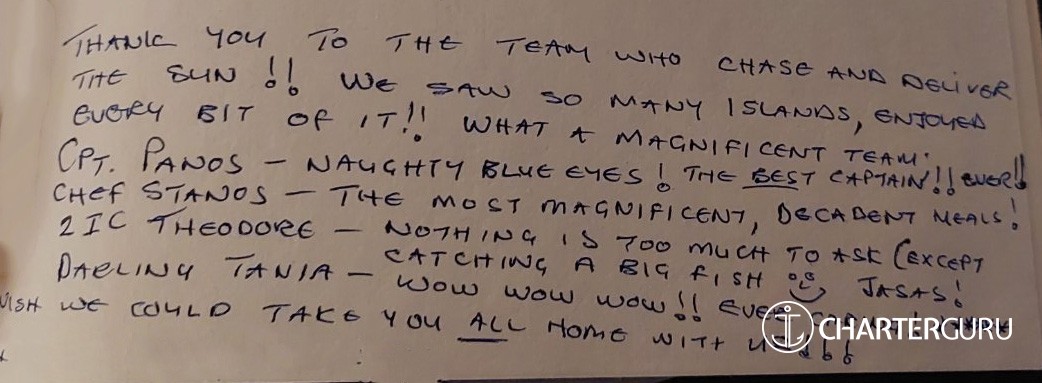 THANK YOU TO THE TEAM WHO CHASE AND DELIVER
THE SUN!! WE SAW SO MANY ISLANDS, ENJOYED
EVERY BIT OF IT!! WHAT A MAGNIFICENT TEAM:
CPT. PANOS – NAUGHTY BLUE EYES! THE BEST CAPTAIN!! EVER!!
CHEF STANOS – THE MOST MAGNIFICENT, DECADENT MEALS!
2IC THEODORE – NOTHING IS TOO MUCH TO ASK (EXCEPT
CATCHING A BIG FISH JASAS!
DARLING TANIA – WOW WOW WOW!!
WISH WE COULD TAKE YOU ALL HOME WITH
CHARTERGURU